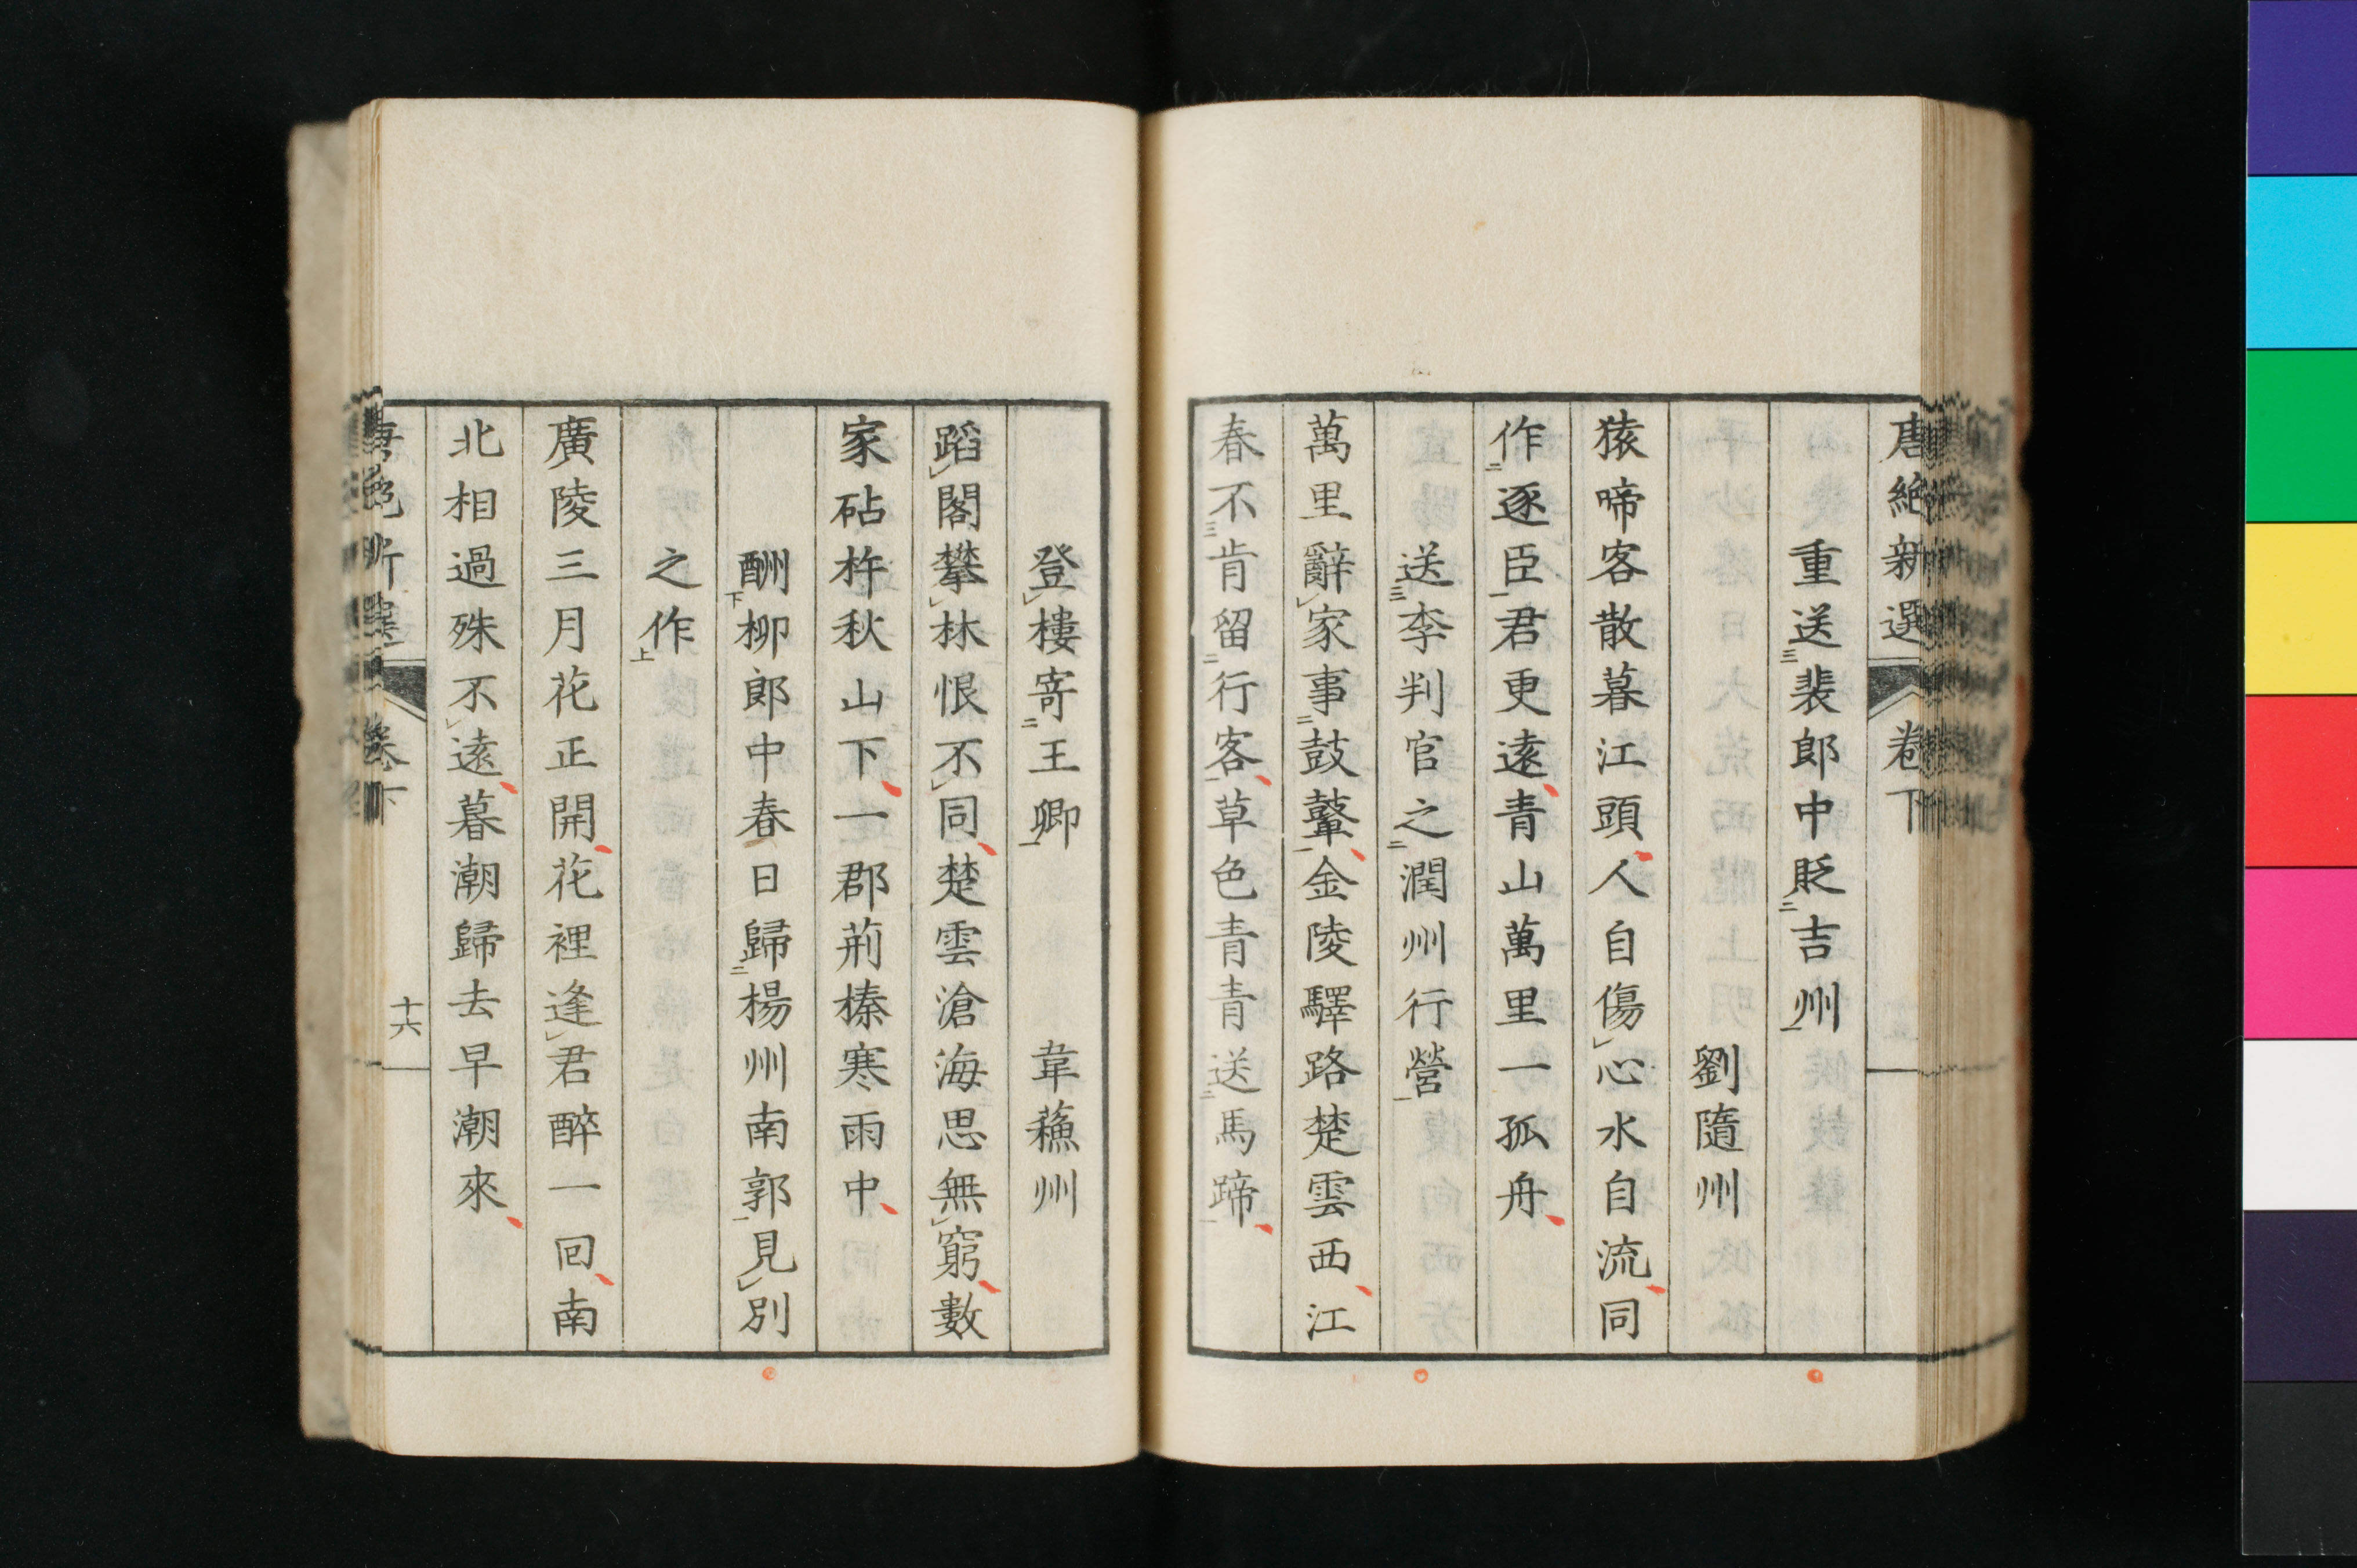 唐絶新選 卷下
重送裴郎中貶吉州
劉隨州
猿啼客散暮江頭人自傷心水自流同
作逐臣君更遠青山萬里一孤舟
送李判官之潤州行營
萬里辭家事鼓鼙金陵驛路楚雲西江
春不肯留行客草色青青送馬蹄
登樓寄王卿 韋蘓州
蹈閣攀林恨不同楚雲滄海思無窮數
家砧杵秋山下一郡荊榛寒雨中
酬柳郎中春日歸楊州南郭見別
之作
廣陵三月花正開花裡逢君醉一回南
北相過殊不遠暮潮歸去早潮來
十六